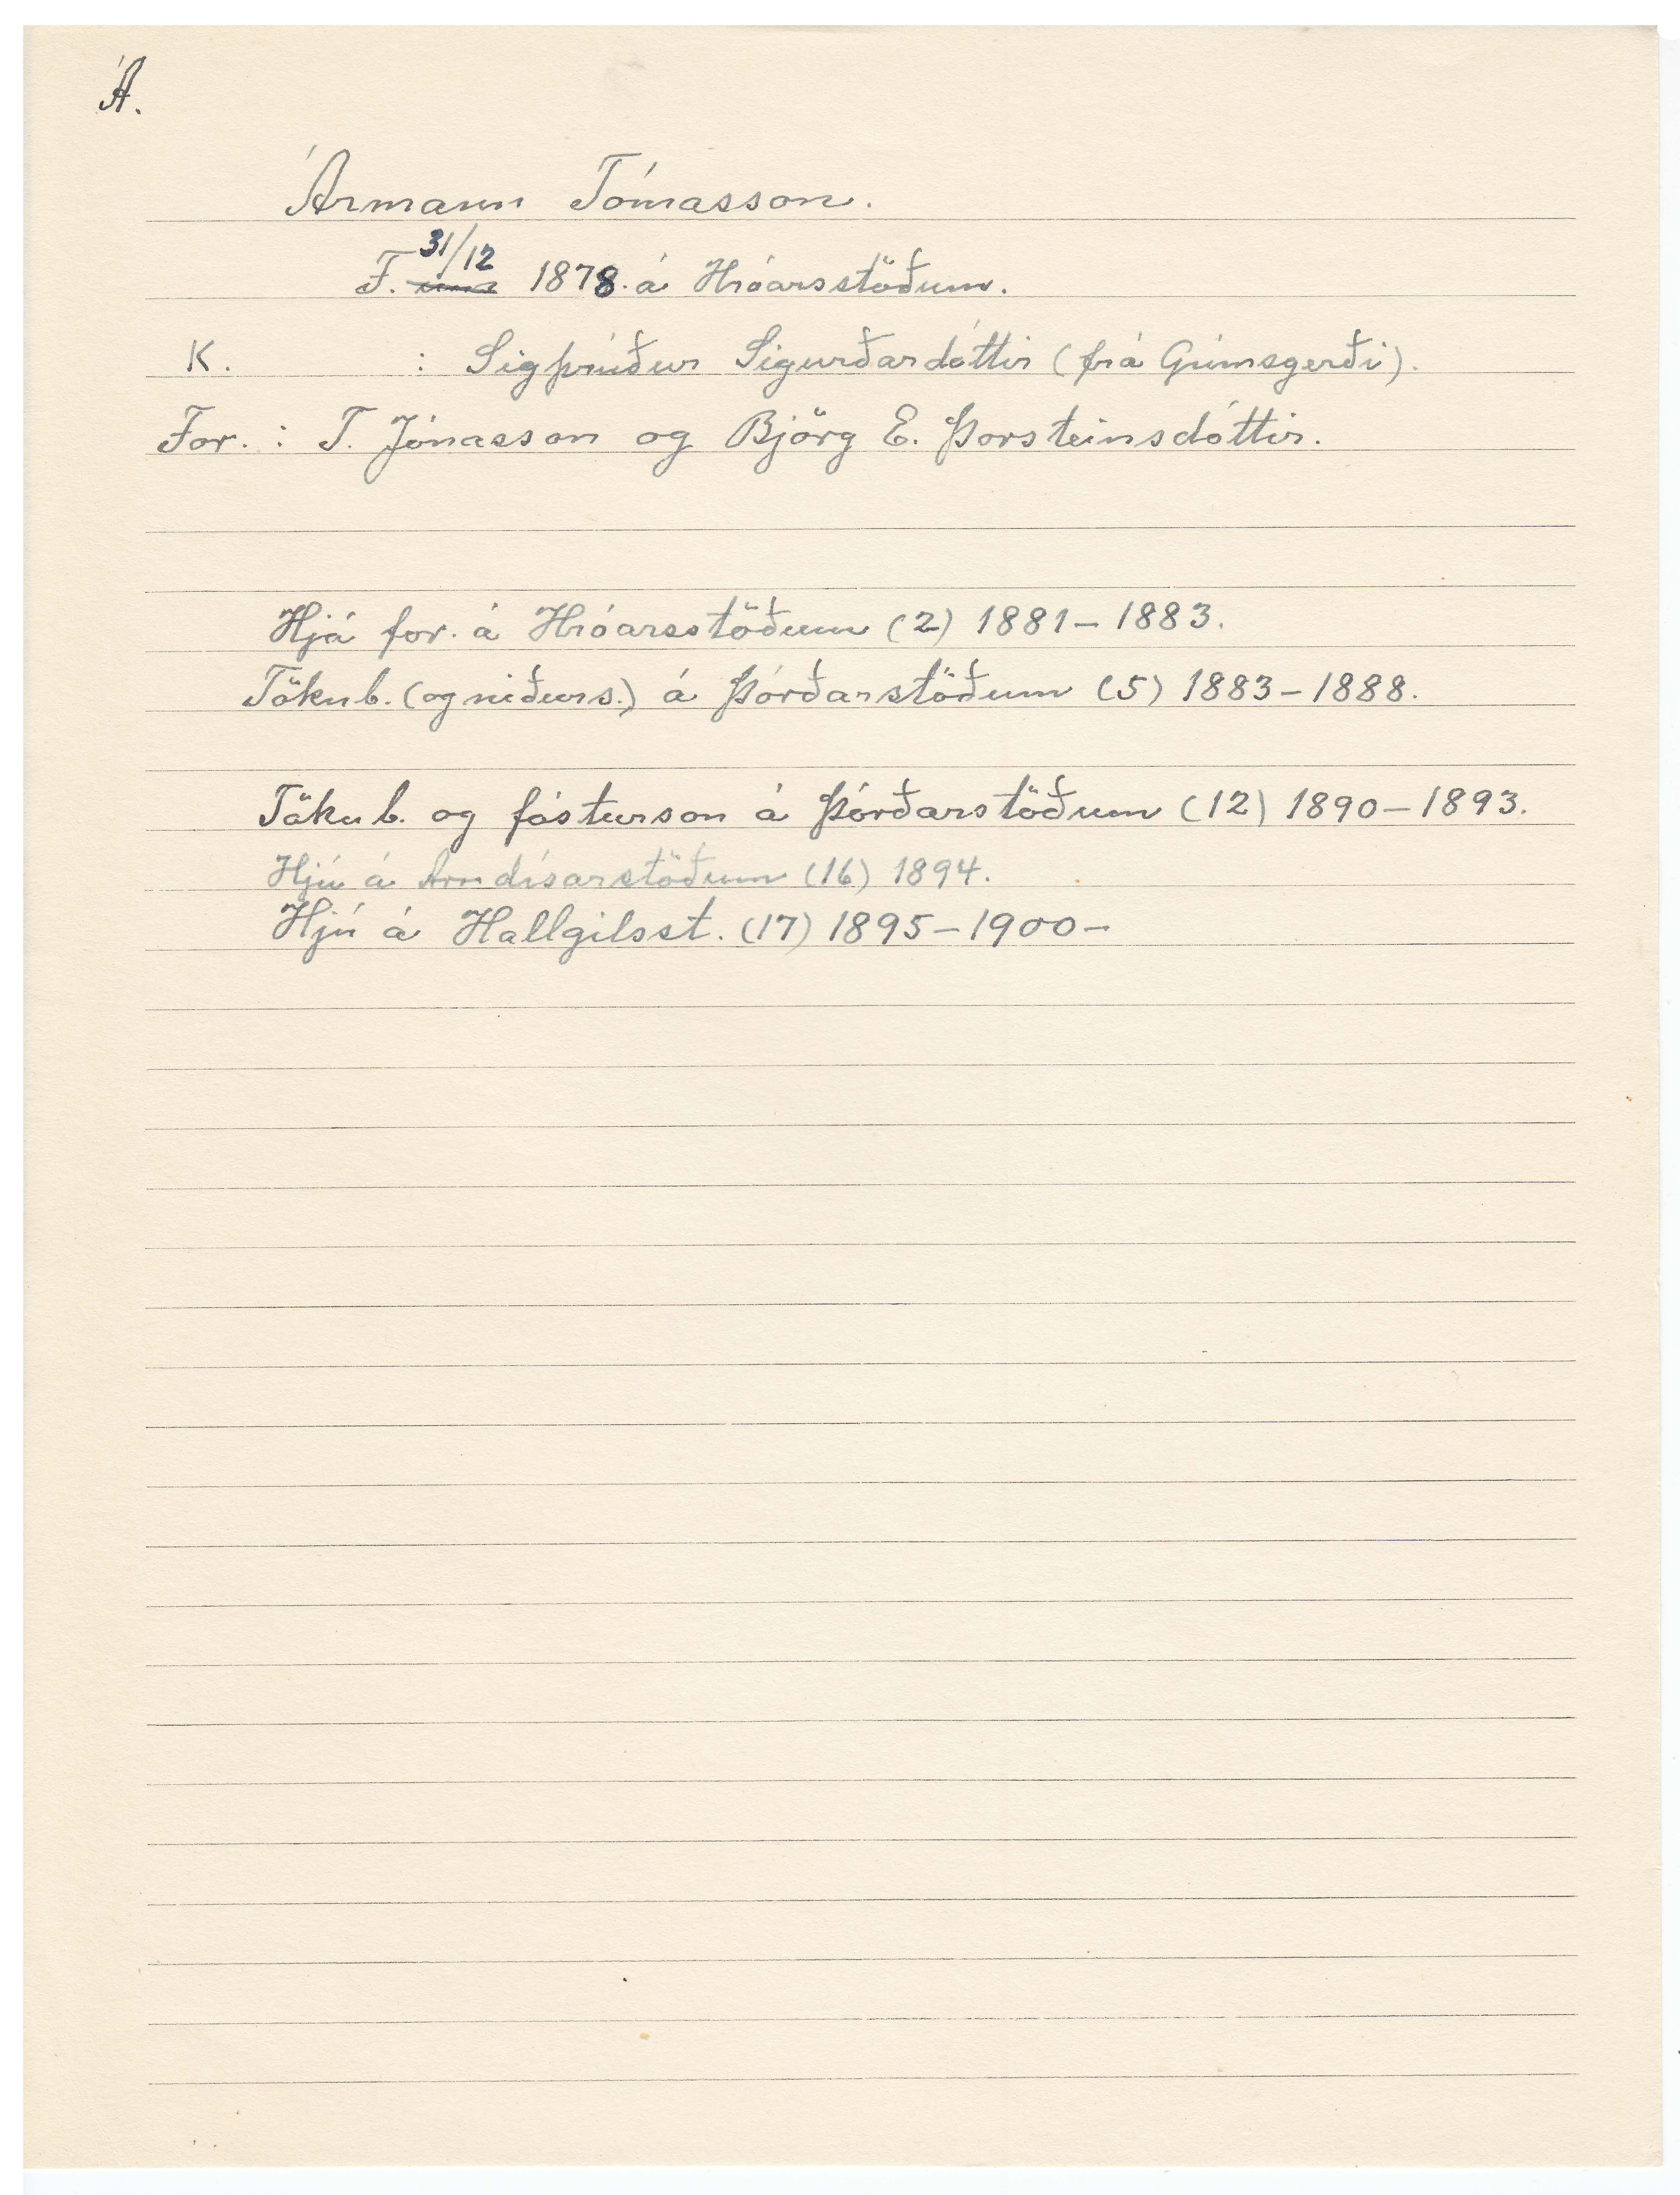 Á.
Ármann Tómasson.
31/12
F. 1878. á Hróarsstöðum.
K. : Sigþrúður Sigurðardóttir (frá Grímsgerði).
For. : T. Jónasson og Björg E. Þorsteinsdóttir.
Hjá for. á Hróarsstöðum (2) 1881-1883.
Tökub. (og niðurs.) á Þórðarstöðum (5) 1883-1888.
Tökub. og fósturson á Þórðarstöðum (12) 1890-1893.
Hjú á Arndísarstöðum (16) 1894.
Hjú á Hallgilsst. (17) 1895-1900-